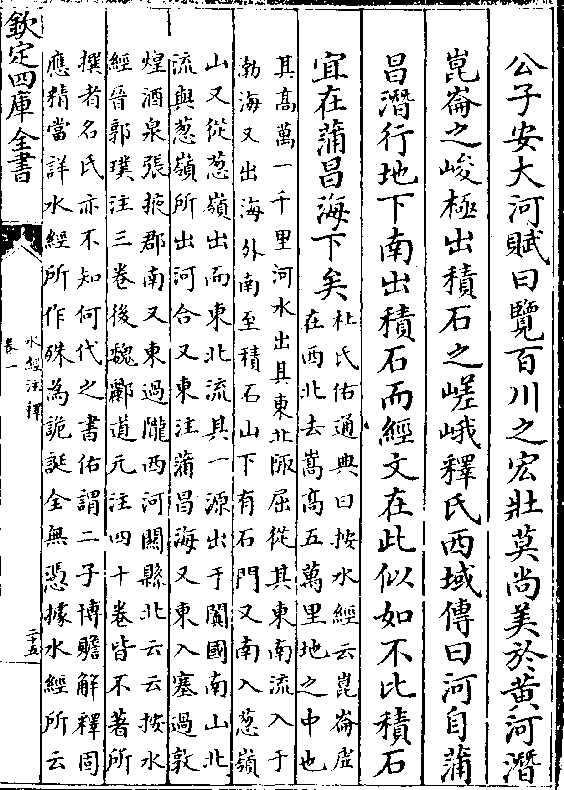 公子安大河賦曰覽百川之宏壯莫尚美於黃河潛
崑崙之峻極出積石之嵯峨釋氏西域傳曰河自蒲
昌潛行地下南出積石而經文在此似如不比積石
宜在蒲昌海下矣
杜氏佑通典曰按水經云崑崙虛
在西北去嵩高五萬里地之中也
其高萬一千里河水出其東北陬屈從其東南流入于
渤海又出海外南至積石山下有石門又南入葱嶺
山又從葱嶺出而東北流其一源出于闐國南山北
流與葱嶺所出河合又東注蒲昌海又東入塞過敦
煌酒泉張掖郡南又東過隴西河關縣北云云按水
經晉郭璞注三卷後魏酈道元注四十卷皆不著所
撰者名氏亦不知何代之書佑謂二子博贍解釋固
應精當詳水經所作殊為詭誕全無憑據水經所云
欽定四庫全書
水經注釋
卷一
二十五